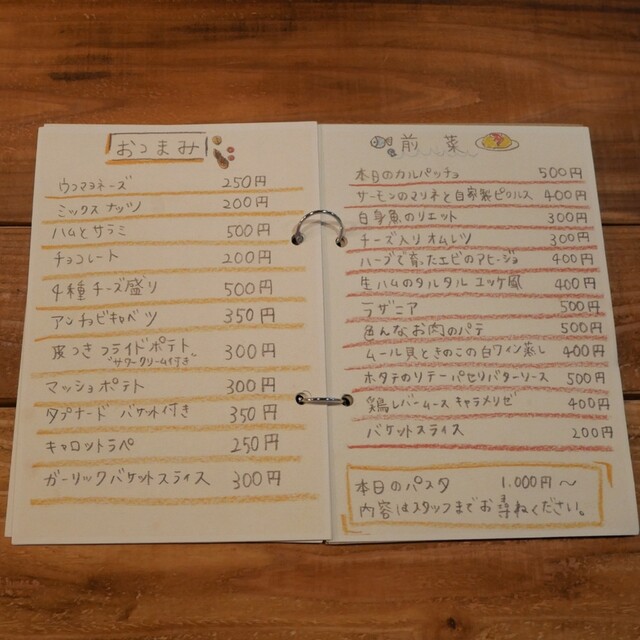 おつまみ
ウフマヨネーズ 250円
ミックスナッツ 200円
ハムとサラミ 500円
チョコレート 200円
4種チーズ盛り 500円
アンチョビキャベツ 350円
皮つきフライドポテト 300円
〝サワークリーム付き〟
マッシュポテト 300円
タプナード バケット付き 350円
キャロットラペ 250円
ガーリックバケットスライス 300円
前菜
本日のカルパッチョ 500円
サーモンのマリネと自家製ピクルス 400円
白身魚のリエット 300円
チーズ入りオムレツ 300円
ハーブで育ったエビのアヒージョ 400円
生ハムのタルタル ユッケ風 400円
ラザニア 500円
色んなお肉のパテ 500円
ムール貝ときのこの白ワイン蒸し 400円
ホタテのソテー パセリバターソース 500円
鶏レバームース キャラメリゼ 400円
バケットスライス 200円
本日のパスタ 1.000円～
内容はスタッフまでお尋ねください。